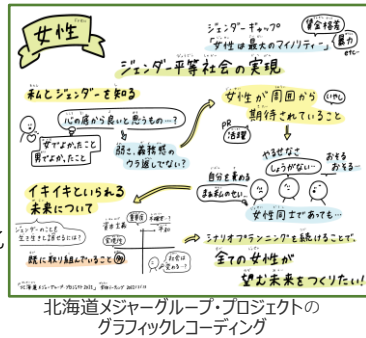 女性
ジェンダーギャップ
「女性は最大のマイノリティー」
賃金格差
暴力
etc…
ジェンダー平等社会の実現
私とジェンダーを知る
心の底から良いと思うもの…?
女でよかったこと
男でよかったこと
弱さ、義務感の
ウラ返しでない?
女性が周囲から
期待されていること
いやし
PR
活躍
やるせなさ
しょうがない…
おそる
おそる…
自分を責める
まぁ私のせい…
女性同士であっても…
イキイキといられる
未来について
ジェンダーのことを
生き生きと話せるには?
既に取り組んでいること
シナリオプランニングを続けることで、
全ての女性が
望む未来をつくりたい!
北海道メジャーグループ・プロジェクトの
グラフィックレコーディング